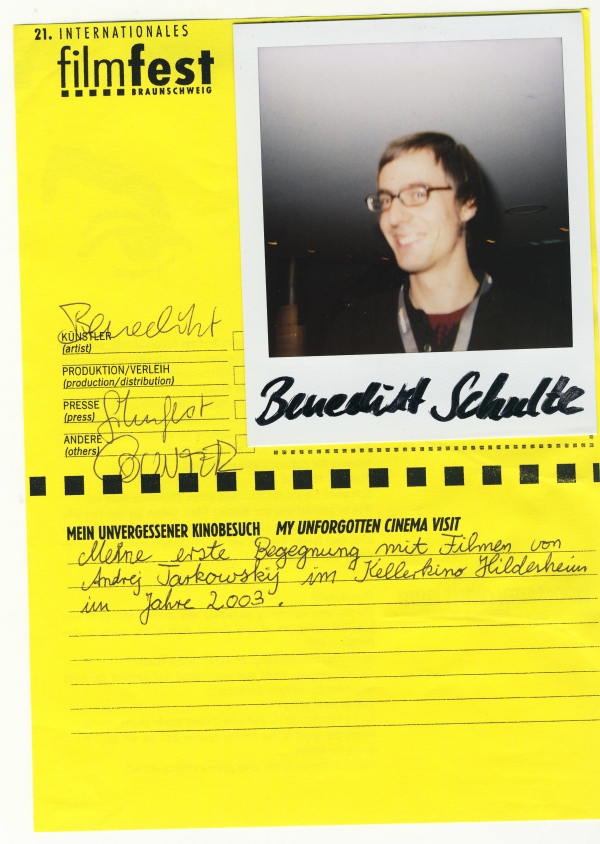 21. INTERNATIONALES
filmfest
BRAUNSCHWEIG
Benedikt
KÜNSTLER
(artist)
PRODUKTION/VERLEIH
(production/distribution)
PRESSE
(press)
filmfest
ANDERE
(others)
COUNTER
Benedikt Schulte
MEIN UNVERGESSENER KINOBESUCH MY UNFORGOTTEN CINEMA VISIT
Meine erste Begegnung mit Filmen von
Andrej Tarkowskij im Kellerkino Hildesheim
im Jahre 2003.